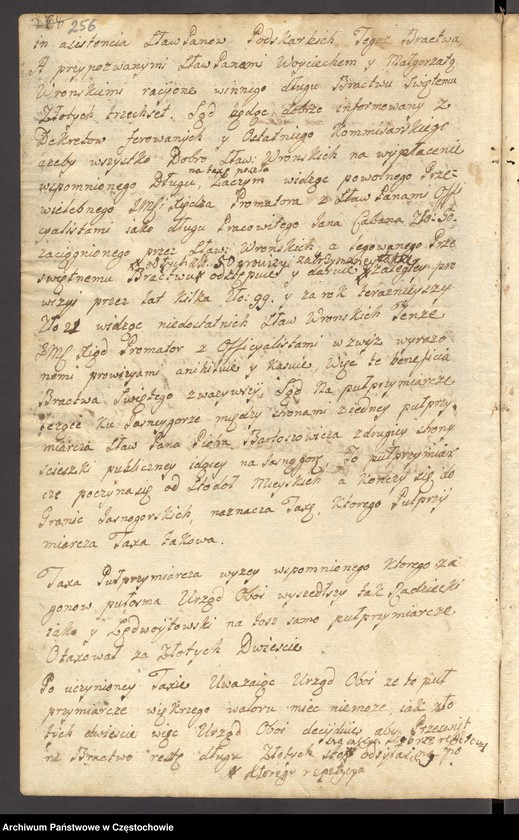 256
in asistencia Sław Panow Podskarbich Tegoz Bractwa
A przypozwanymi Sław Panami Woyciechem y Małgorzatą
Wronskiemi racyone winnego długu Bractwu Swiętemu
Złotych trzechset. Sąd będąc dobrze informowany z
Dekretow ferowanych y Ostatniego Kommisarskiego
azeby wszystko Dobro Sław: Wronskich na wypłacenie
na taxę poszło
wspomnionego Długu, Zaczym widząc powolnego Prze-
wielebnego JMci Xiędza Promatora z Sław Panami Offi
cyalistami iako długu Pracowitego Jana Cabana Zło: 50.
zaciągnionego przez Sław: Wronskich a legowanego Prze
swiętnemu Bractwu odstępuie y daruie y zaległey pro
wizyi przez lat kilka Zło: 99. y za rok teraznieyszy
Zło 21 widząc niedostatnich Sław Wronskich Tenze
JMc Xiądz Promator z Officyalistami wzwyz wyrazo
nemi prowizyami anihiluie y kasuie, Więc te beneficia
Bractwa Swiętego zwazywszy, Sąd Na pułprzymiarcze
lezące Ku Jasneygorze między stronami z iedney pułprzy
miarcza Sław Pana Piotra Bartoszewicza z drugiey strony
scieszki publiczney idącey na Jasnągorę. To pułprzymiar
cze poczyna się od Stodoł Mieyskich a Konczy się do
Granic Jasnogorskich, naznacza Taxę, Ktorego Pułprzy
miarcza Taxa takowa.
Taxa Pułprzymiarcza wyzey wspomnionego Ktorego za
gonow pułosma Urząd Oboi wyszedłszy tak Radziecki
iako y Ledwoytowski na tosz samo pułprzymiarcze
Otaxował za Złotych Dwiescie
Po uczynioney Taxie Uwazaiąc Urząd Oboi ze te puł
przymiarcze większego waloru miec niemoze, iak zło
tych dwiescie więc Urząd Oboi decyduie aby Przeswięt
ne Bractwo resztę długu Złotych sto odstąpieło
Ktorego repetycya